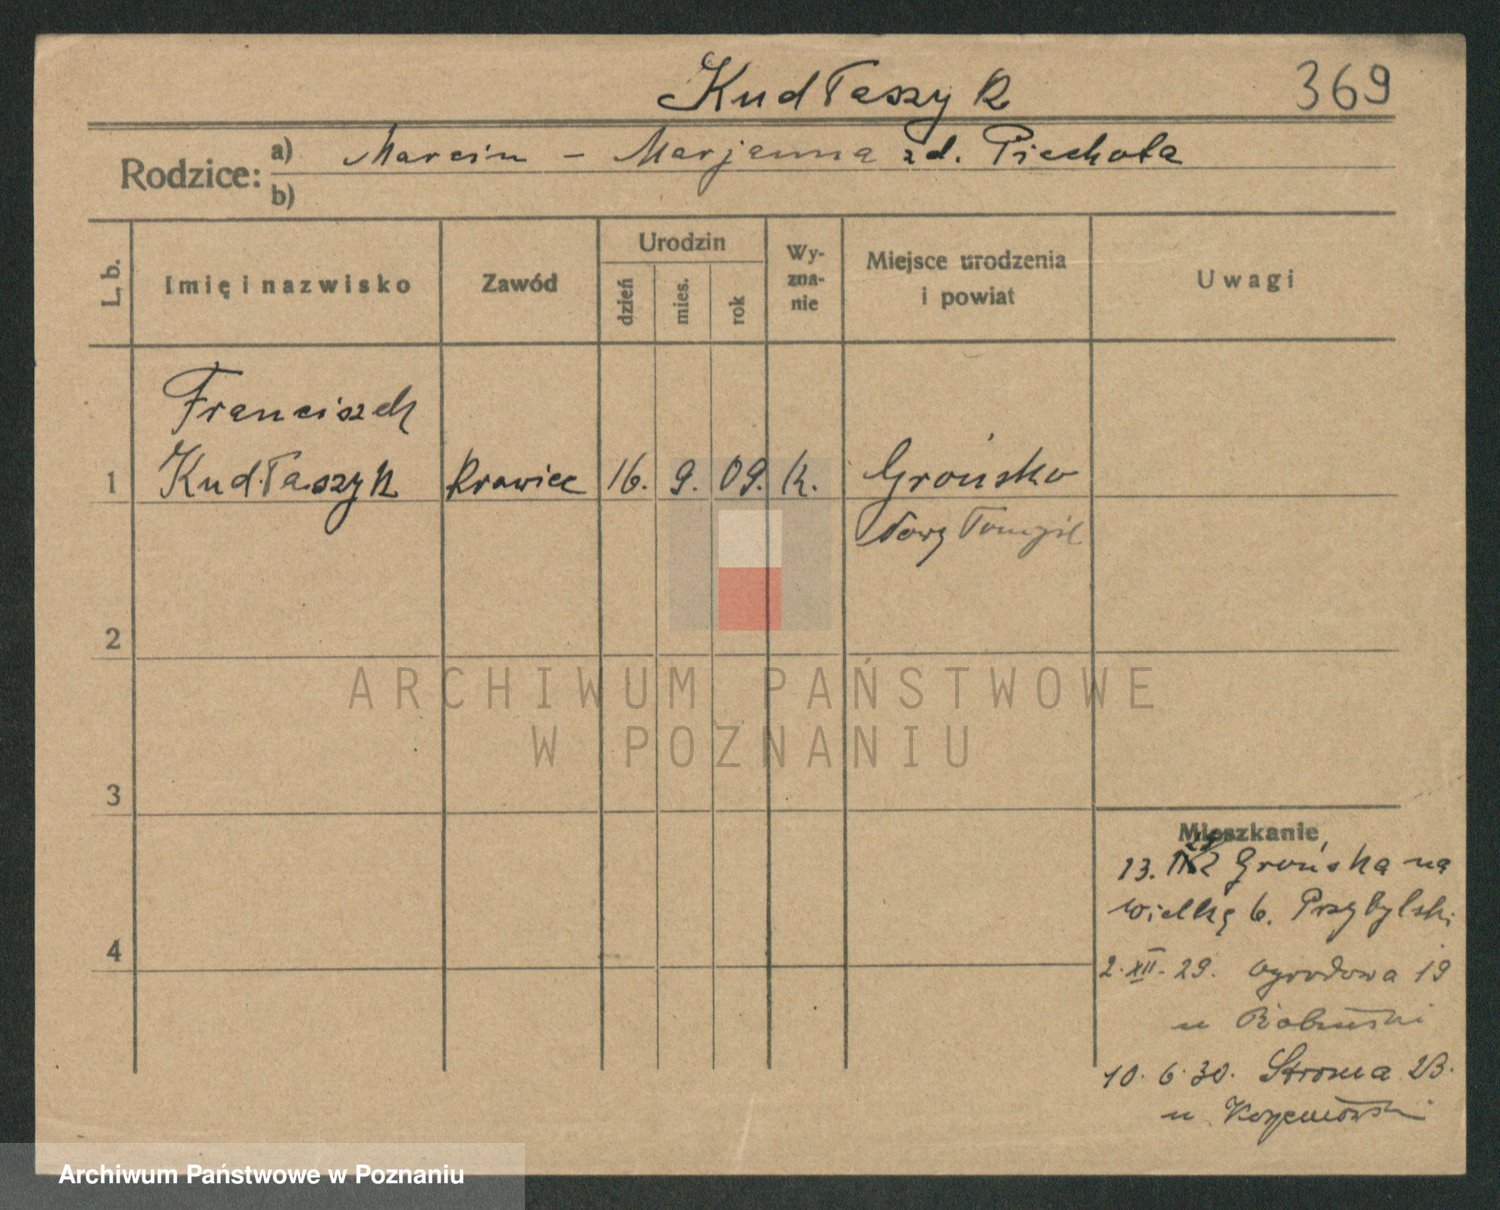 Kudłaszyk 369
Rodzice: a) Marcin – Marjanna zd. Piechota
b)
L. b. Imię i nazwisko Zawód Urodzin dzień mies. rok Wy-
zna-
nie Miejsce urodzenia
i powiat Uwagi
Franciszek
1 Kudłaszyk krawiec 16. 9. 09. k. Grońsko
Nowy Tomyśl
2
ARCHIWUM PAŃSTWOWE
W POZNANIU
3
Mieszkanie
13. 29 Grońska na
wielką 6. Przybylski
4
2. XII. 29. Ogrodowa 19
u
10. 6. 30. Stroma 23.
u
Archiwum Państwowe w Poznaniu